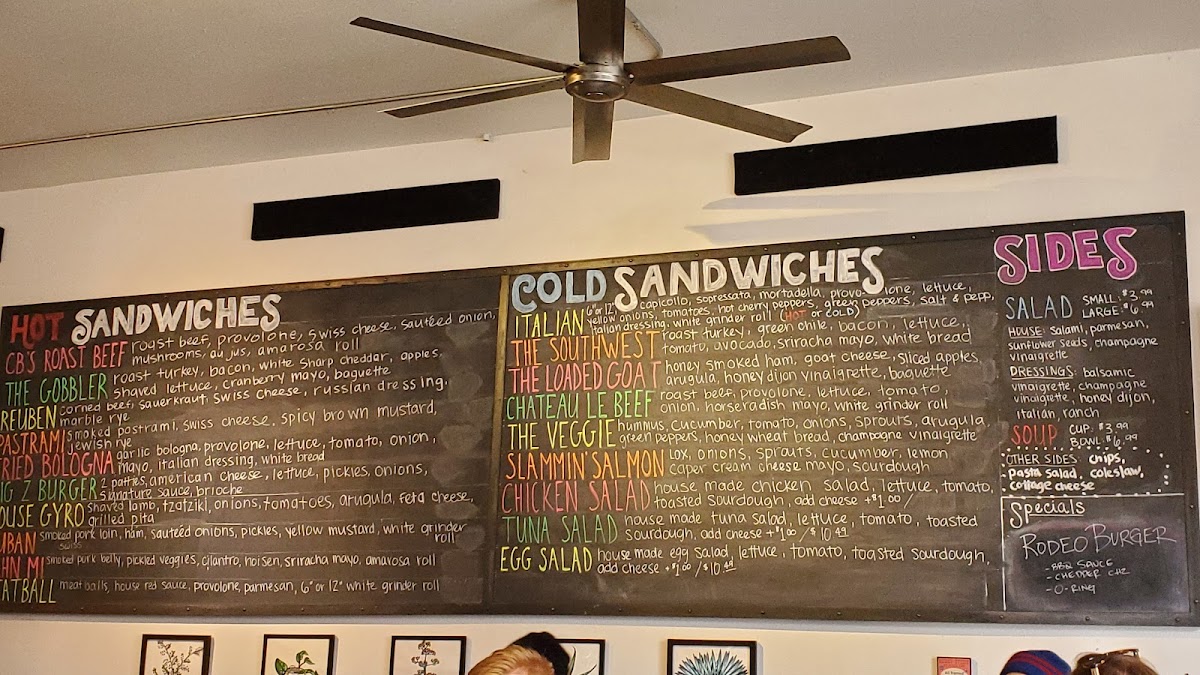 HOT SANDWICHES
CB'S ROAST BEEF roast beef, provolone, swiss cheese, sautéed onion,
mushrooms, au jus, amarosa roll
THE GOBBLER roast turkey, bacon, white sharp cheddar, apples,
shaved lettuce, cranberry mayo, baguette
REUBEN corned beef, sauerkraut, swiss cheese, russian dressing,
marble rye
PASTRAMI smoked pastrami, swiss cheese, spicy brown mustard,
jewish rye
FRIED BOLOGNA garlic bologna, provolone, lettuce, tomato, onion,
mayo, italian dressing, white bread
IG Z BURGER 2 patties, american cheese, lettuce, pickles, onions,
signature sauce, brioche
OUSE GYRO shaved lamb, tzatziki, onions, tomatoes, arugula, feta cheese,
grilled pita
UBAN smoked pork loin, ham, sautéed onions, pickles, yellow mustard, white grinder
swiss roll
HN MI smoked pork belly, pickled veggies, cilantro, hoisen, sriracha mayo, amarosa roll
ATBALL meatballs, house red sauce, provolone, parmesan, 6" or 12" white grinder roll
COLD SANDWICHES
ITALIAN 6" or 12" capicollo, sopressata, mortadella, provolone, lettuce,
yellow onions, tomatoes, hot cherry peppers, green peppers, salt & pepp,
italian dressing, white grinder roll (HOT or COLD)
THE SOUTHWEST roast turkey, green chile, bacon, lettuce,
tomato, avocado, sriracha mayo, white bread
THE LOADED GOAT honey smoked ham, goat cheese, sliced apples,
arugula, honey dijon vinaigrette, baguette
CHATEAU LE BEEF roast beef, provolone, lettuce, tomato,
onion, horseradish mayo, white grinder roll
THE VEGGIE hummus, cucumber, tomato, onions, sprouts, arugula,
green peppers, honey wheat bread, champagne vinaigrette
SLAMMIN' SALMON lox, onions, sprouts, cucumber, lemon
caper cream cheese mayo, sourdough
CHICKEN SALAD house made chicken salad, lettuce, tomato,
toasted sourdough, add cheese +$1.00 /
TUNA SALAD house made tuna salad, lettuce, tomato, toasted
sourdough, add cheese +$1.00 / $10.49
EGG SALAD house made egg salad, lettuce, tomato, toasted sourdough,
add cheese +$1.00 / $10.49
SIDES
SALAD SMALL: $3.99
LARGE: $6.99
HOUSE: salami, parmesan,
sunflower seeds, champagne
vinaigrette
DRESSINGS: balsamic
vinaigrette, champagne
vinaigrette, honey dijon,
italian, ranch
SOUP CUP: $3.99
BOWL: $6.99
OTHER SIDES: chips,
pasta salad, coleslaw,
cottage cheese
Specials
RODEO BURGER
- BBQ SAUCE
- CHEDDER CHZ
- O-RING